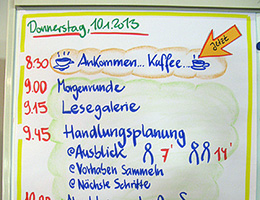 Donnerstag, 10.1.2013
jetzt
8:30 Ankommen... Kaffee...
9.00 Morgenrunde
9.15 Lesegalerie
9.45 Handlungsplanung
@Ausblick 7' 14'
@Vorhaben Sammeln
@Nächste Schritte